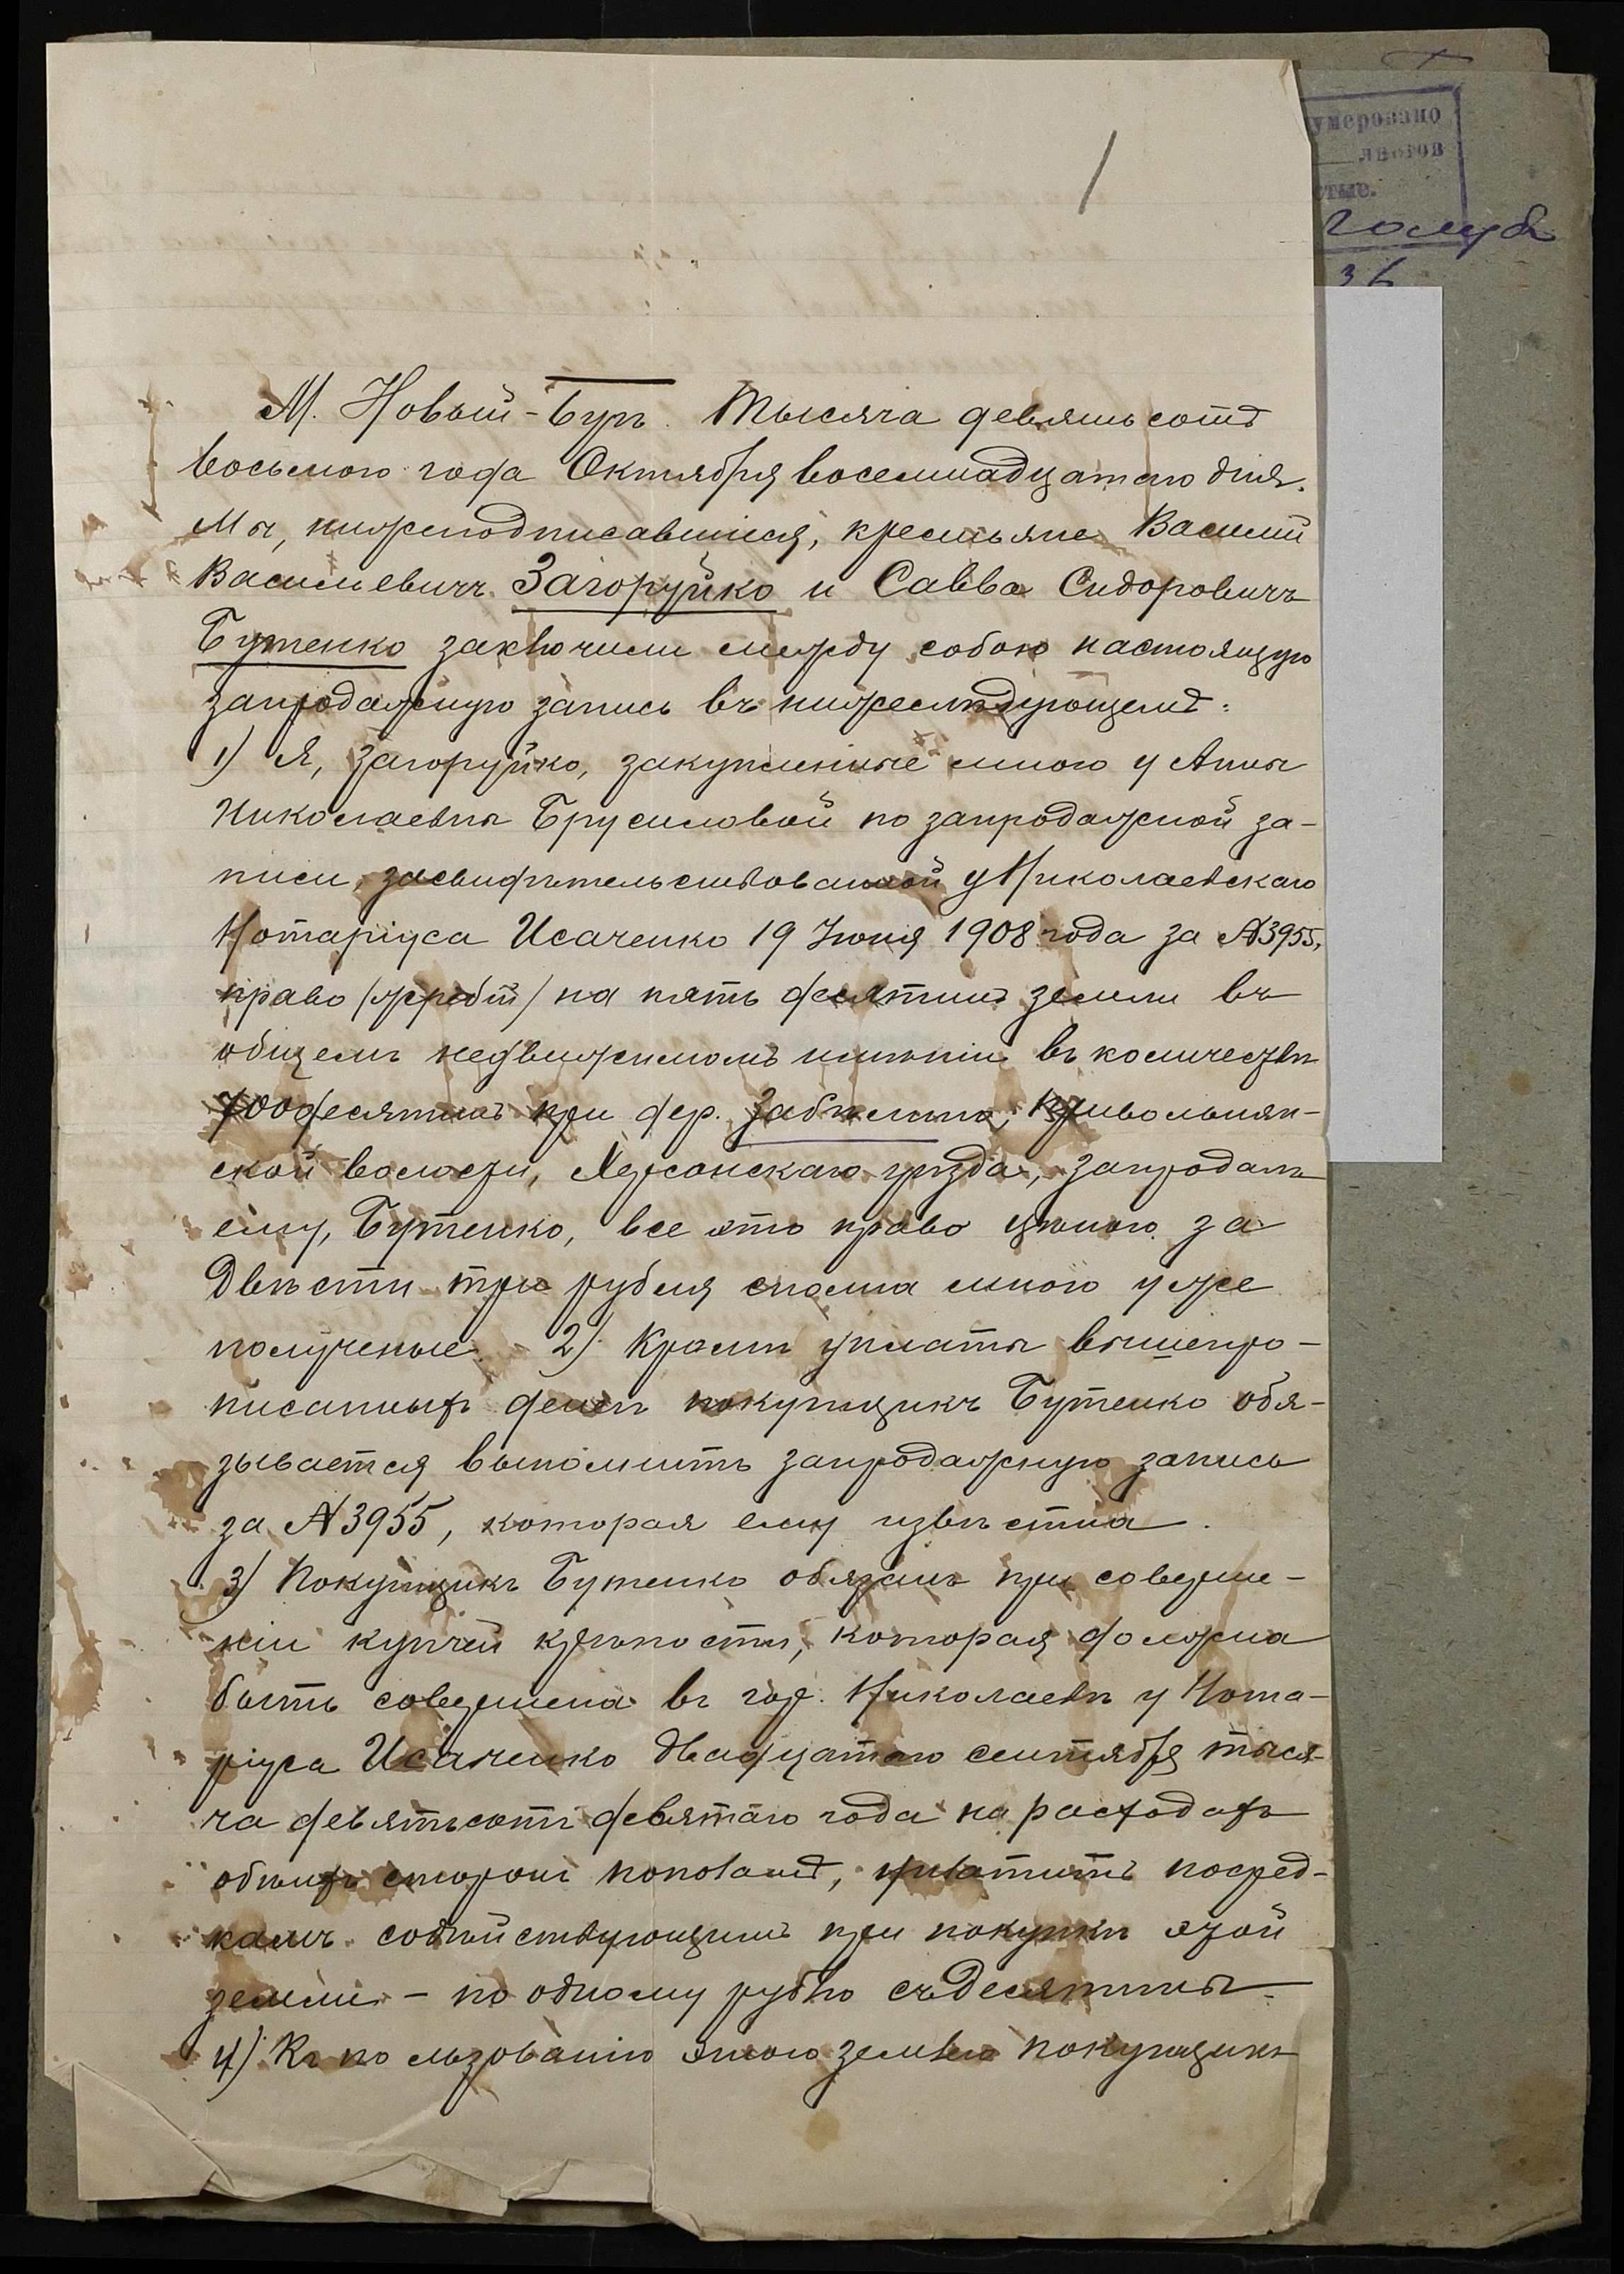 1
умеровано
листов
стые.
голуб
36
М. Новый-Буг. Тысяча девятьсотъ
восьмого года Октября восемнадцатаго дня.
Мы, нижеподписавшіеся, крестьяне Василій
Васильевичъ Загоруйко и Савва Сидоровичъ
Бутенко заключили между собою настоящую
запродажную запись въ нижеслѣдующемъ:
1) Я, Загоруйко, закупленные мною у Анны
Николаевны Брусиловой по запродажной за-
писи, засвидѣтельствованной у Николаевскаго
Нотаріуса Исаченко 19 Іюня 1908 года за №3955,
право (жребій) на пять десятинъ земли въ
общемъ недвижимомъ имѣніи въ количествѣ
700 десятинъ при дер. Забѣлино, Привольнян-
ской волости, Херсонскаго уѣзда, запродалъ
ему, Бутенко, все это право цѣною за
Двѣсти три рубля сполна мною уже
полученые. - 2) Кромѣ уплаты вышепро-
писанныхъ денегъ покупщикъ Бутенко обя-
зывается выполнить запродажную запись
за №3955, которая ему извѣстна.
3) Покупщикъ Бутенко обязанъ при соверше-
ніи купчей крѣпости, которая должна
быть совершена въ гор. Николаевѣ у Нота-
ріуса Исаченко двадцатаго сентября тыся-
ча девятьсотъ девятаго года на расходахъ
обѣихъ сторонъ пополамъ, уплатить посред-
камъ содѣйствующимъ при покупкѣ этой
земли - по одному рублю съ десятины.
4) Къ пользованію этою землею покупщикъ